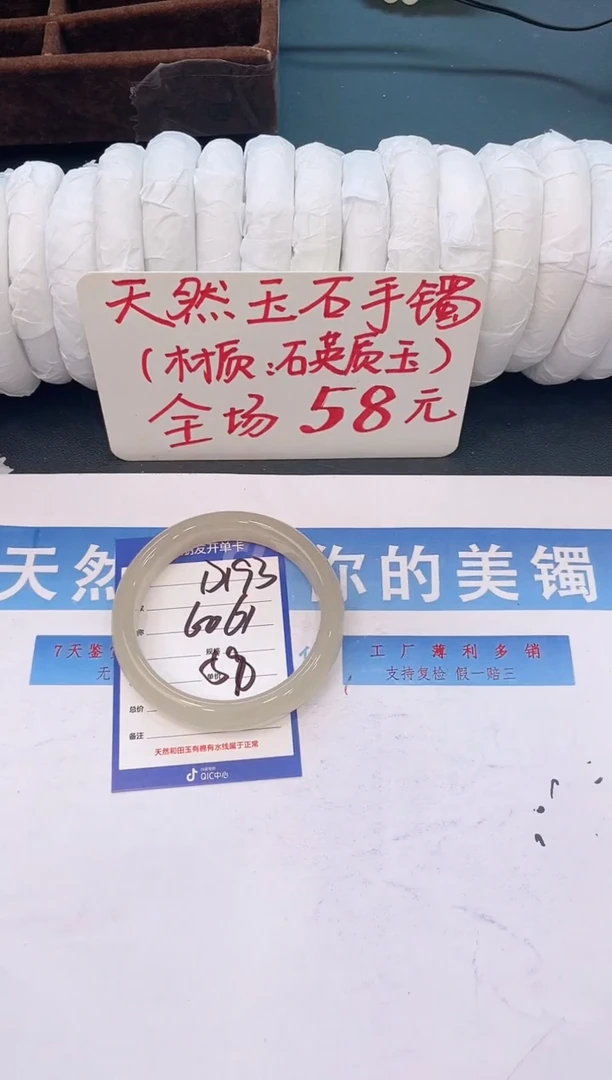 天然玉石手镯
(材质:石英质玉)
全场 58元
天然 你的美镯
朋友开单卡
D193
6061
规格
58
单价
总价
备注
天然和田玉有棉有水线属于正常
QIC中心
7天鉴
无
工厂薄利多销
支持复检 假一赔三